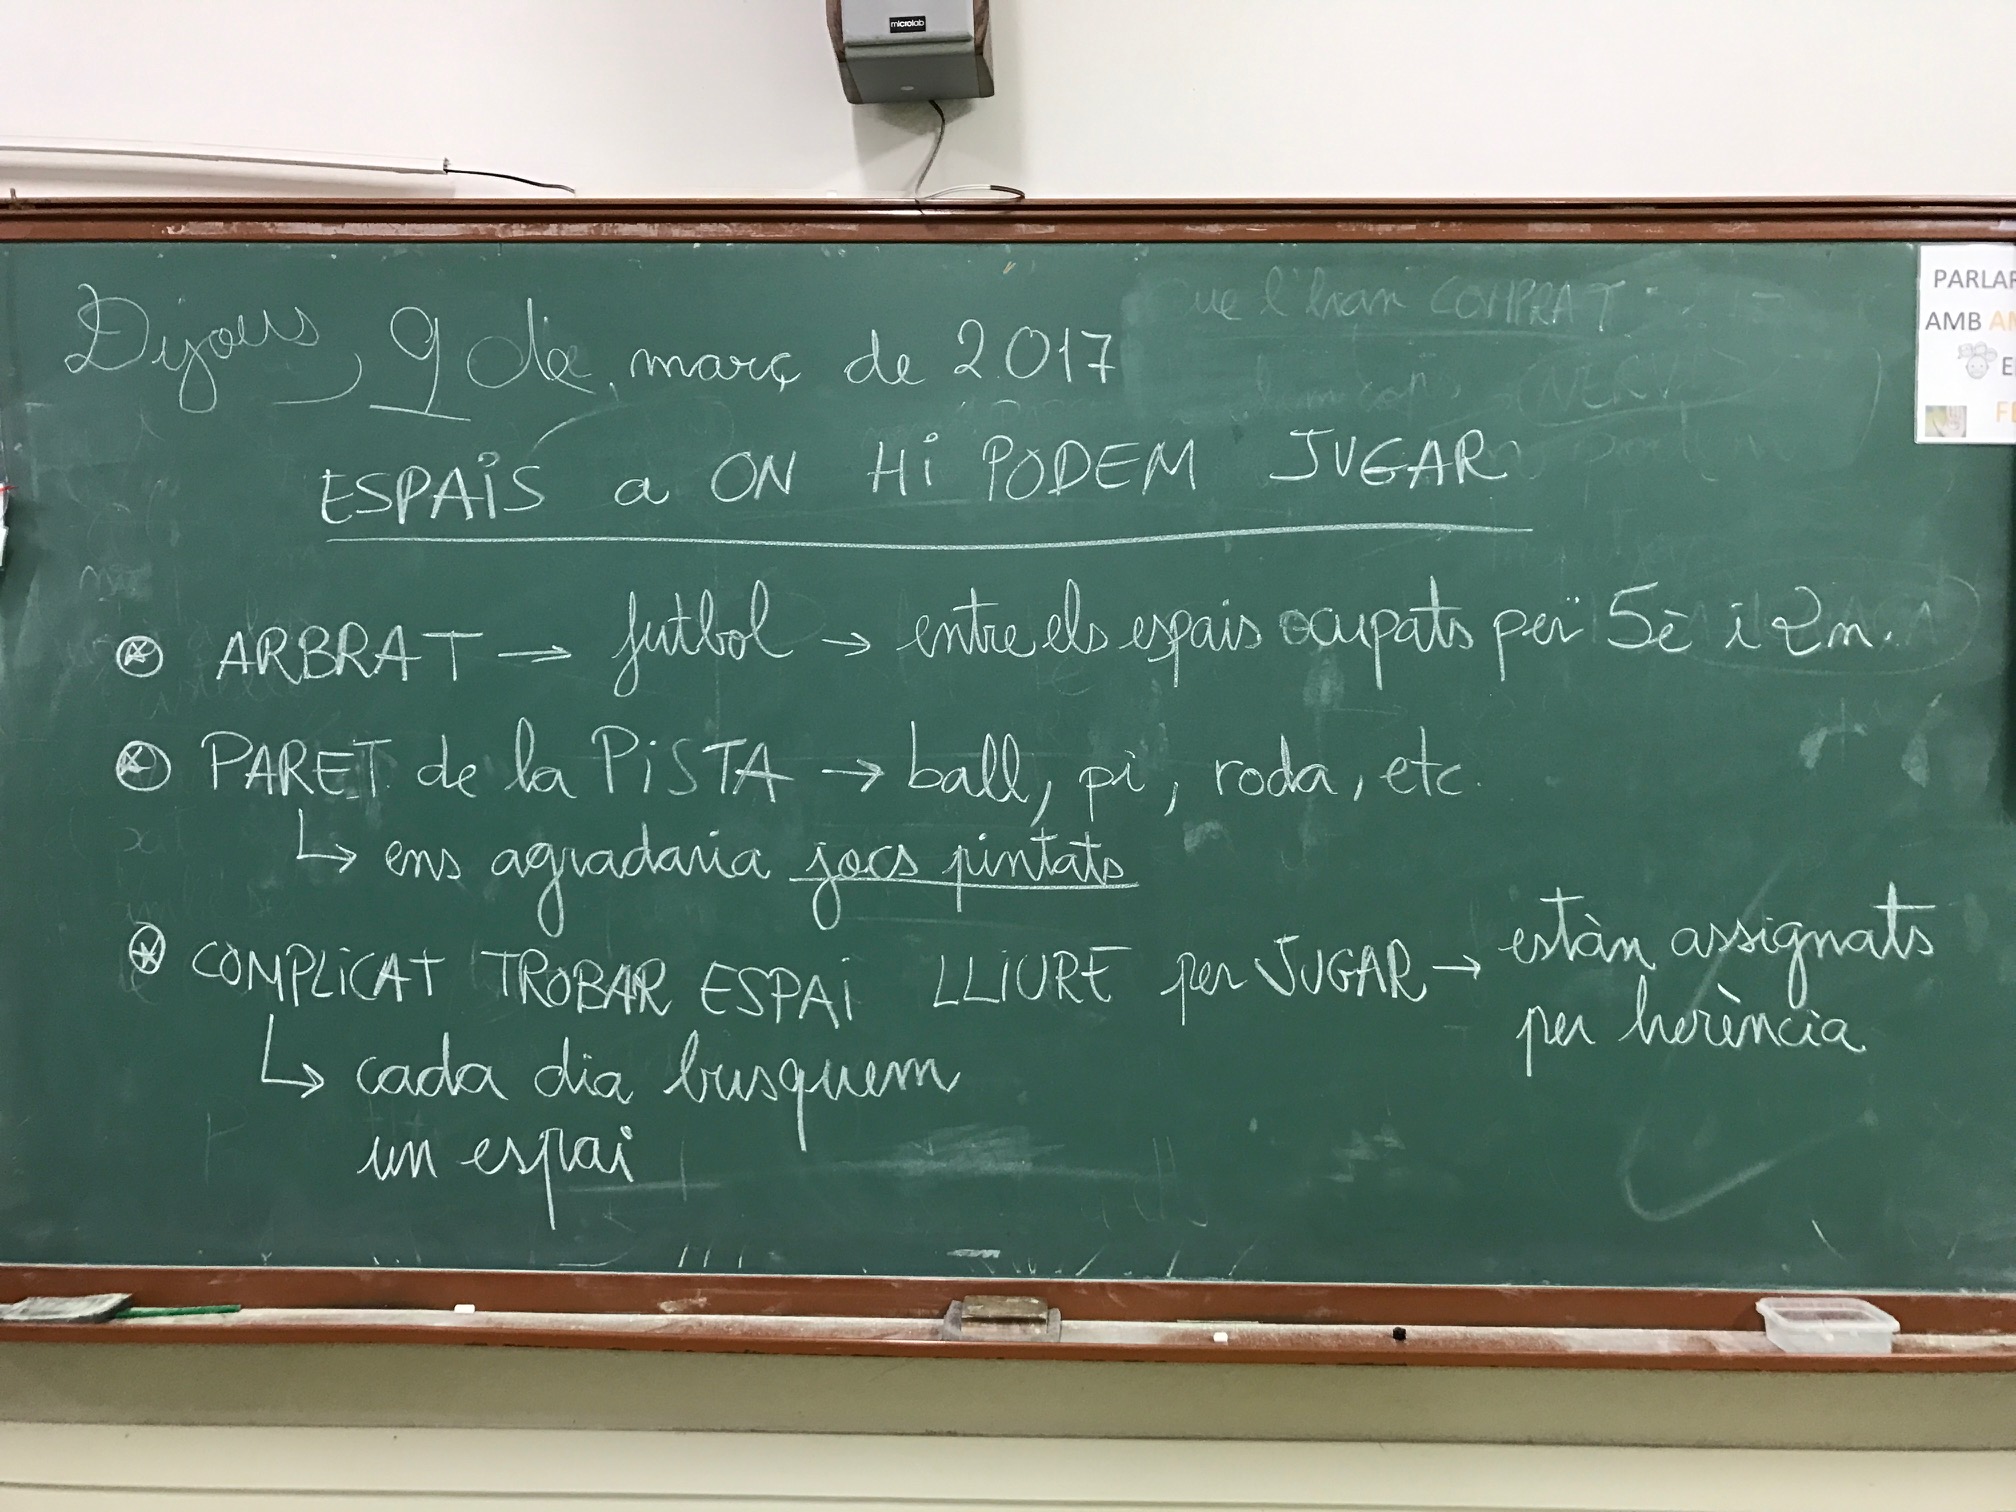 microlab
Dijous, 9 de març de 2017
que l'han COMPRAT
PARLAR
AMB
ESPAIS a ON Hi PODEM JUGAR
ARBRAT → futbol → entre els espais ocupats per 5è i 2n.
PARET de la PiSTA → ball, pi, roda, etc.
↳ ens agradaria jocs pintats
COMPLiCAT TROBAR ESPAi LLIURE per JUGAR → estàn assignats
per herència
↳ cada dia busquem
un espai